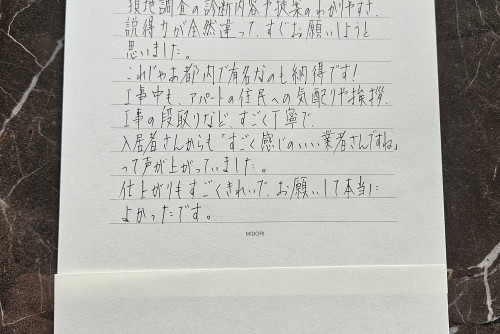 現地調査の診断内容や提案のわかりやすさ、
説得力が全然違って、すぐお願いしようと
思いました。
これじゃあ都内で有名なのも納得です!
工事中も、アパートの住民への気配りや挨拶、
工事の段取りなど、すごく丁寧で、
入居者さんからも「すごく感じのいい業者さんですね」
って声が上がっていました。
仕上がりもすごくきれいで、お願いして本当に
よかったです。
MIDORI